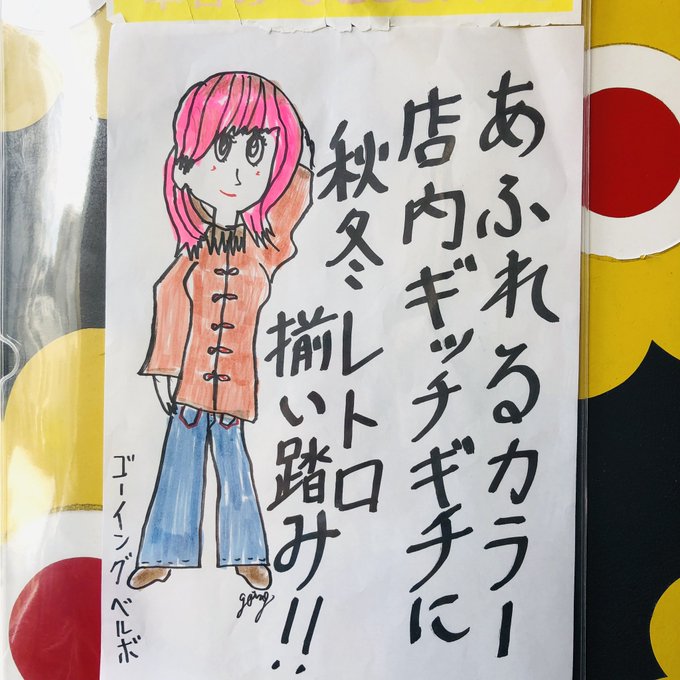 あふれるカラー
店内ギッチギチに
秋冬レトロ
揃い踏み!!
ゴーイングベルボ
going